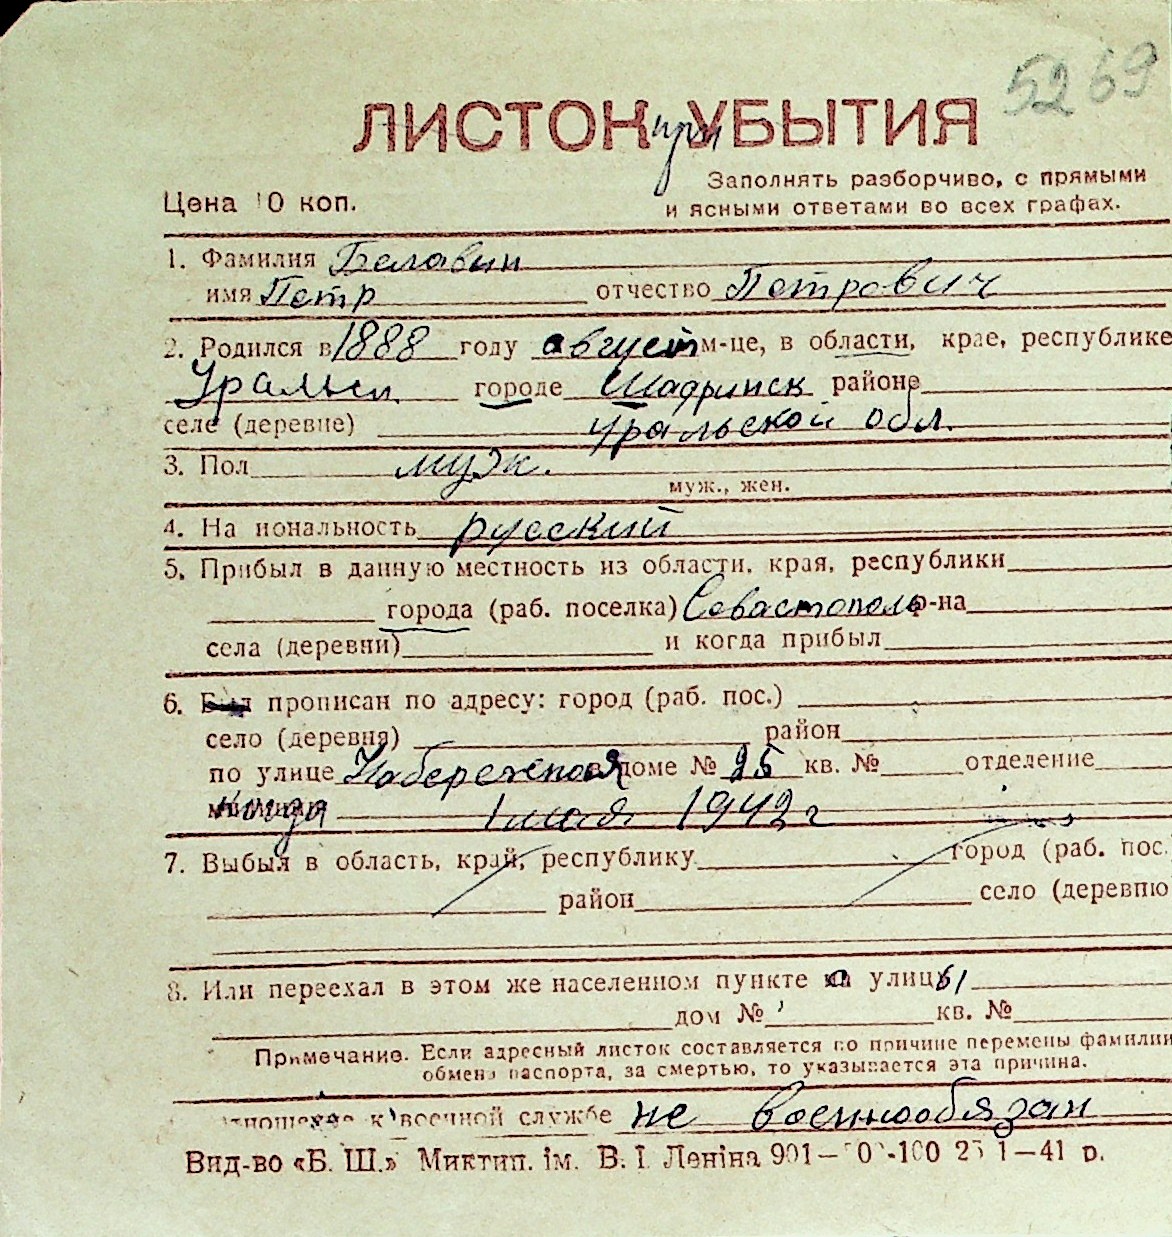 5269
ЛИСТОК при УБЫТИЯ
Заполнять разборчиво, с прямыми
Цена 10 коп. и ясными ответами во всех графах.
1. Фамилия Белавин
имя Петр отчество Петрович
2. Родился в 1888 году август м-це, в области, крае, республике
Уральск. городе Шадринск районе
селе (деревне) Уральской обл.
3. Пол муж.
муж., жен.
4. На иональность русский
5. Прибыл в данную местность из области, края, республики
города (раб. поселка) Севастополь р-на
села (деревни) и когда прибыл
6. Был прописан по адресу: город (раб. пос.)
село (деревня) район
по улице Набережная в доме № 25 кв. № отделение
когда 1 мая 1942 г
7. Выбыл в область, край, республику город (раб. пос.
район село (деревню
8. Или переехал в этом же населенном пункте на улицу 61
дом № кв. №
Примечание. Если адресный листок составляется по причине перемены фамилии
обмена паспорта, за смертью, то указывается эта причина.
тношение к военной службе не военнообязан
Вид-во «Б. Ш.» Миктип. ім. В. І. Леніна 901— 0 -100 25 1—41 р.